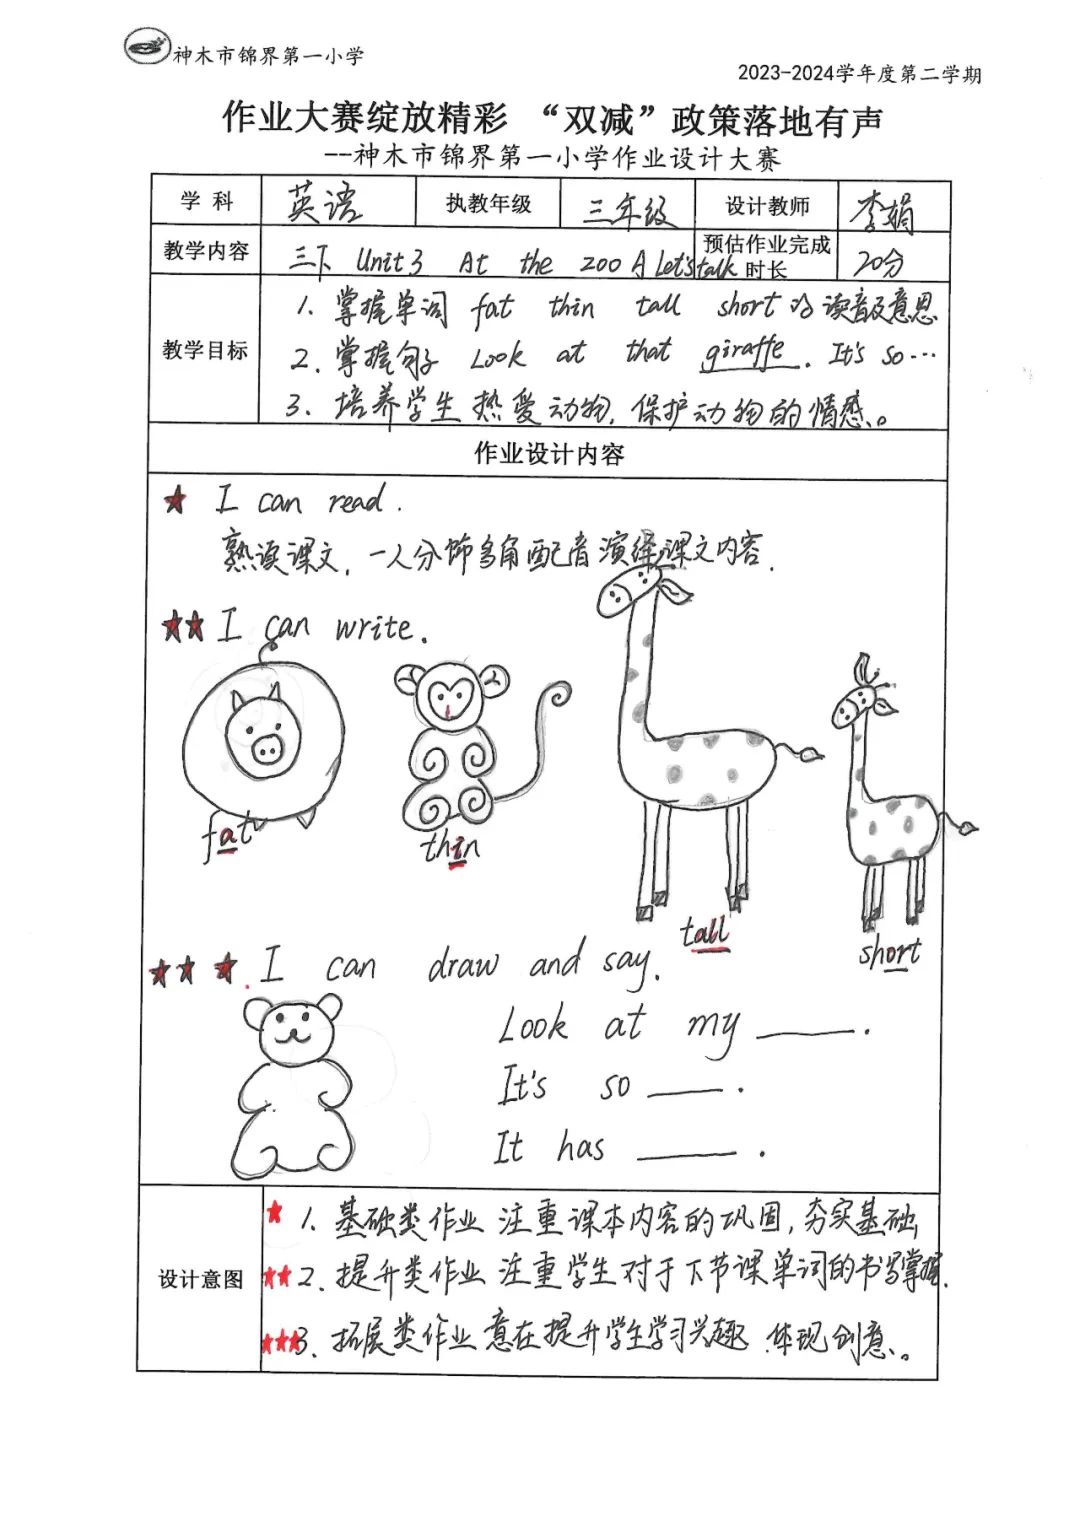 神木市锦界第一小学
2023-2024学年度第二学期
作业大赛绽放精彩 “双减”政策落地有声
--神木市锦界第一小学作业设计大赛
学 科 英语 执教年级 三年级 设计教师 李娟
教学内容 三下 Unit 3 At the zoo A Let's talk 预估作业完成时长 20分
教学目标
1. 掌握单词 fat thin tall short 的读音及意思
2. 掌握句子 Look at that giraffe. It's so…
3. 培养学生热爱动物,保护动物的情感。
作业设计内容
★ I can read.
熟读课文,一人分饰多角配音演绎课文内容.
★★ I can write.
fat
thin
tall
short
★★★. I can draw and say.
Look at my ____.
It's so ____.
It has ____.
设计意图
★ 1. 基础类作业 注重课本内容的巩固,夯实基础
★★ 2. 提升类作业 注重学生对于下节课单词的书写掌握.
★★★ 3. 拓展类作业 意在提升学生学习兴趣.体现创意。